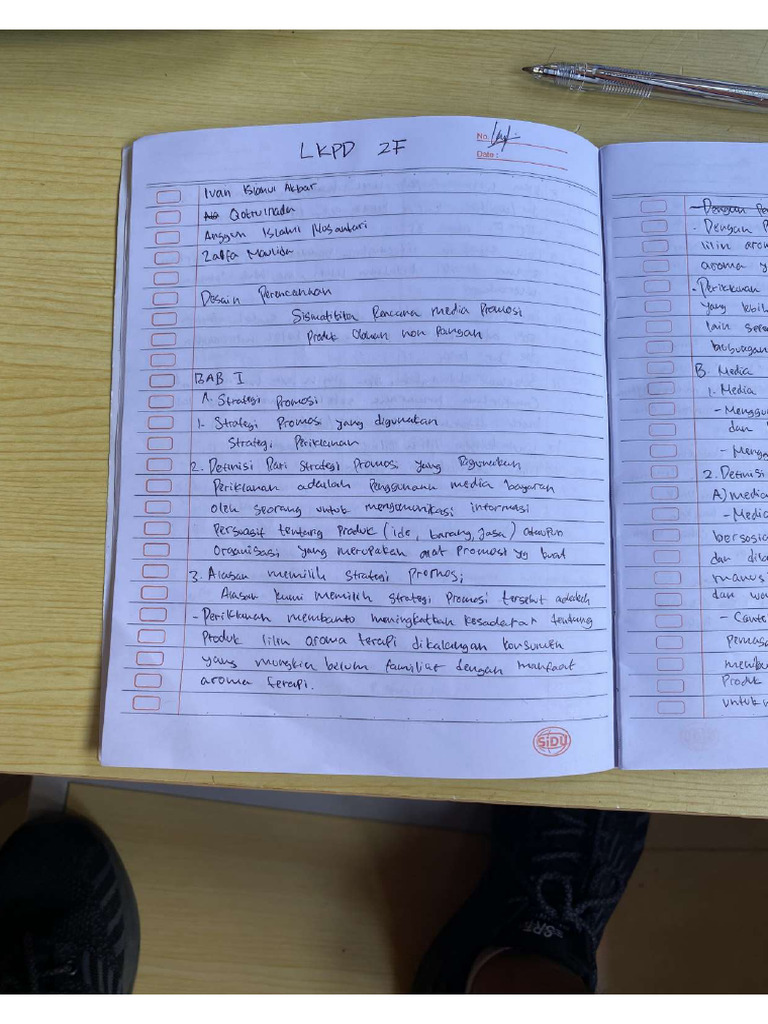 LKPD 2F
No.
Date :
Ivan Islamul Akbar
Qotrulnada
Anggun Islamil Nusantari
Zalfa Maulida
Desain Perencanaan
Sismatitika Rencana media Promosi
Produk Olahan non Pangan
BAB I
A. Strategi Promosi
1. Strategi Promosi yang digunakan
Strategi Periklanan
2. Definisi Dari Strategi Promosi yang Digunakan
Periklanan adalah Penggunaan media bayaran
oleh seorang untuk mengomunikasi informasi
Persuasif tentang Produk (ide, barang, jasa) ataupun
Organisasi yang merupakan alat Promosi yg kuat
3. Alasan memilih strategi Promosi
Alasan kami memilih strategi Promosi tersebut adalah
- Periklanan membantu meningkatkan kesadaran tentang
Produk lilin aroma terapi dikalangan konsumen
yang mungkin belum familiar dengan manfaat
aroma terapi.
SiDU
- Dengan
- Dengan
lilin
aroma
- Periklanan
yang
lain
B. Media
1. Media
- Menggu
dan
- Mengg
2. Definisi
A) media
- Media
bersosia
dan
manus
dan
-
membu
Produk
untuk